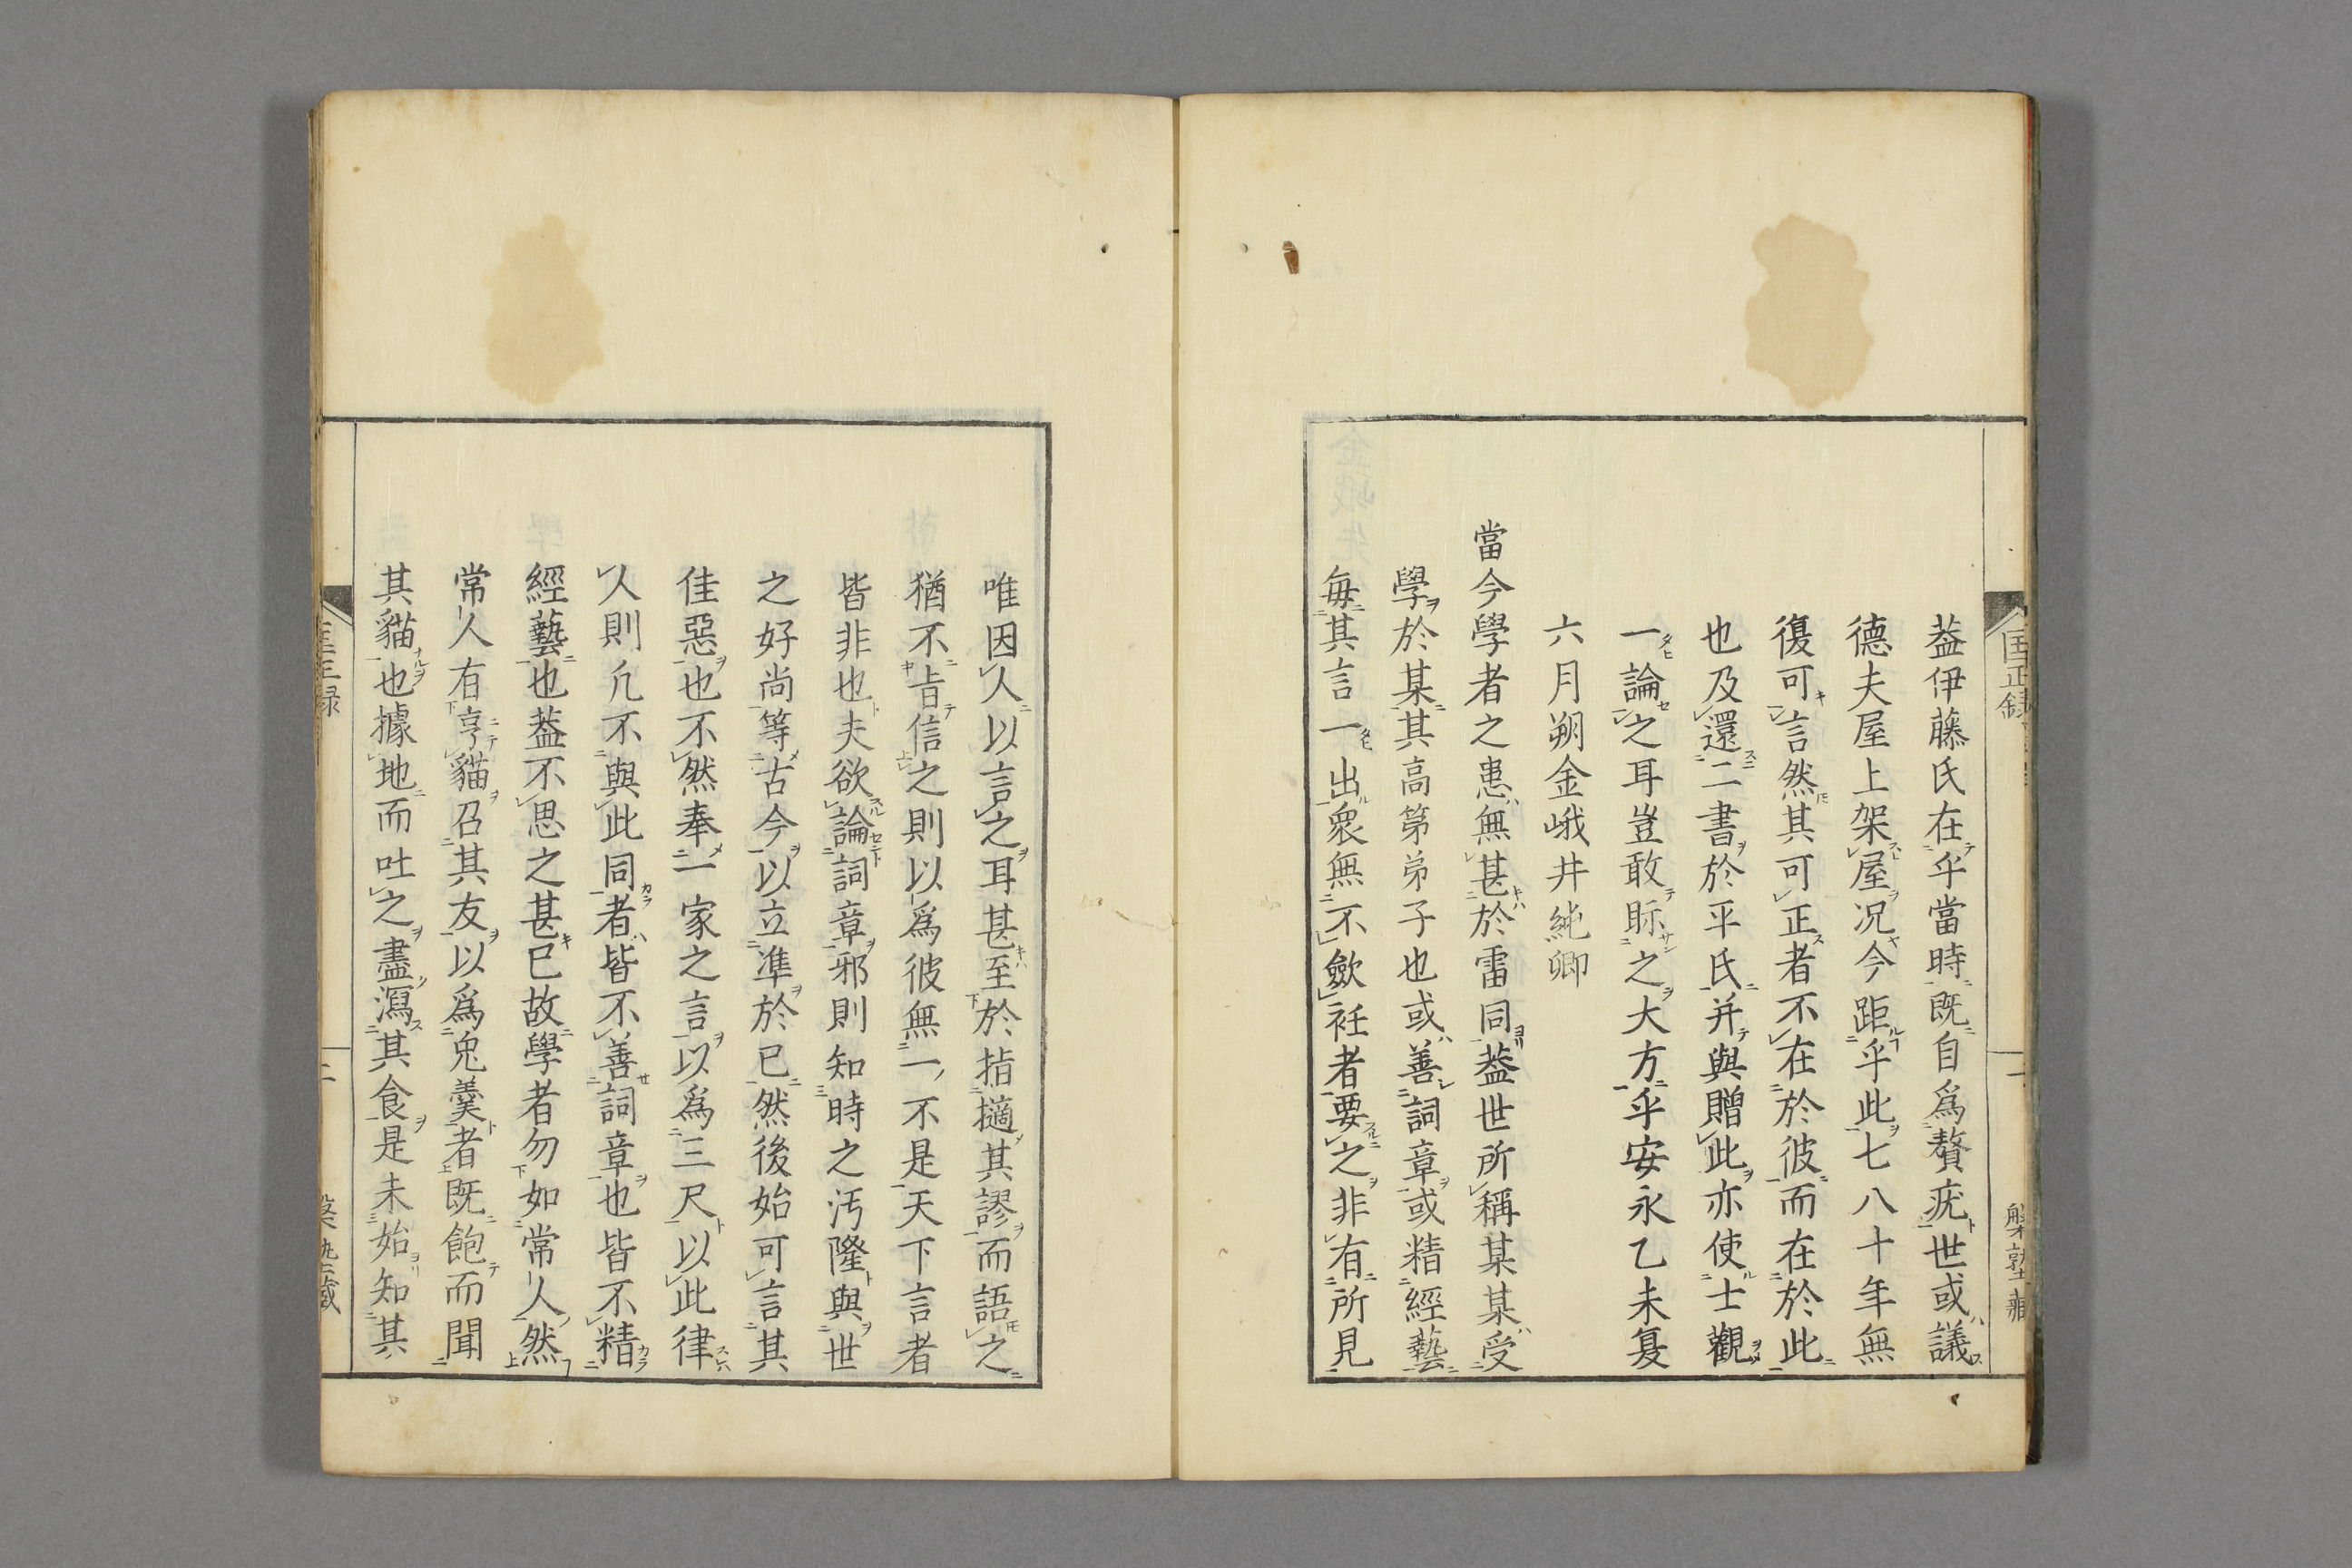 蓋伊藤氏在乎當時既自爲贅疣世或議
德夫屋上架屋况今距乎此七八十年無
復可言然其可正者不在於彼而在於此
也及還二書於平氏并與贈此亦使士觀
一論之耳豈敢眎之大方乎安永乙未夏
六月朔金峨井純卿
當今學者之患無甚於雷同蓋世所稱某某受
學於某其高第弟子也或善詞章或精經藝
每其言一出衆無不斂衽者要之非有所見
唯因人以言之耳甚至於指擿其謬而語之
猶不肯信之則以爲彼無一不是天下言者
皆非也夫欲論詞章邪則知時之汚隆與世
之好尚等古今以立準於已然後始可言其
佳惡也不然奉一家之言以爲三尺以此律
人則凢不與此同者皆不善詞章也皆不精
經藝也蓋不思之甚已故學者勿如常人然
常人有亨貓召其友以爲兔羹者既飽而聞
其貓也據地而吐之盡瀉其食是未始知其
匡正錄
二